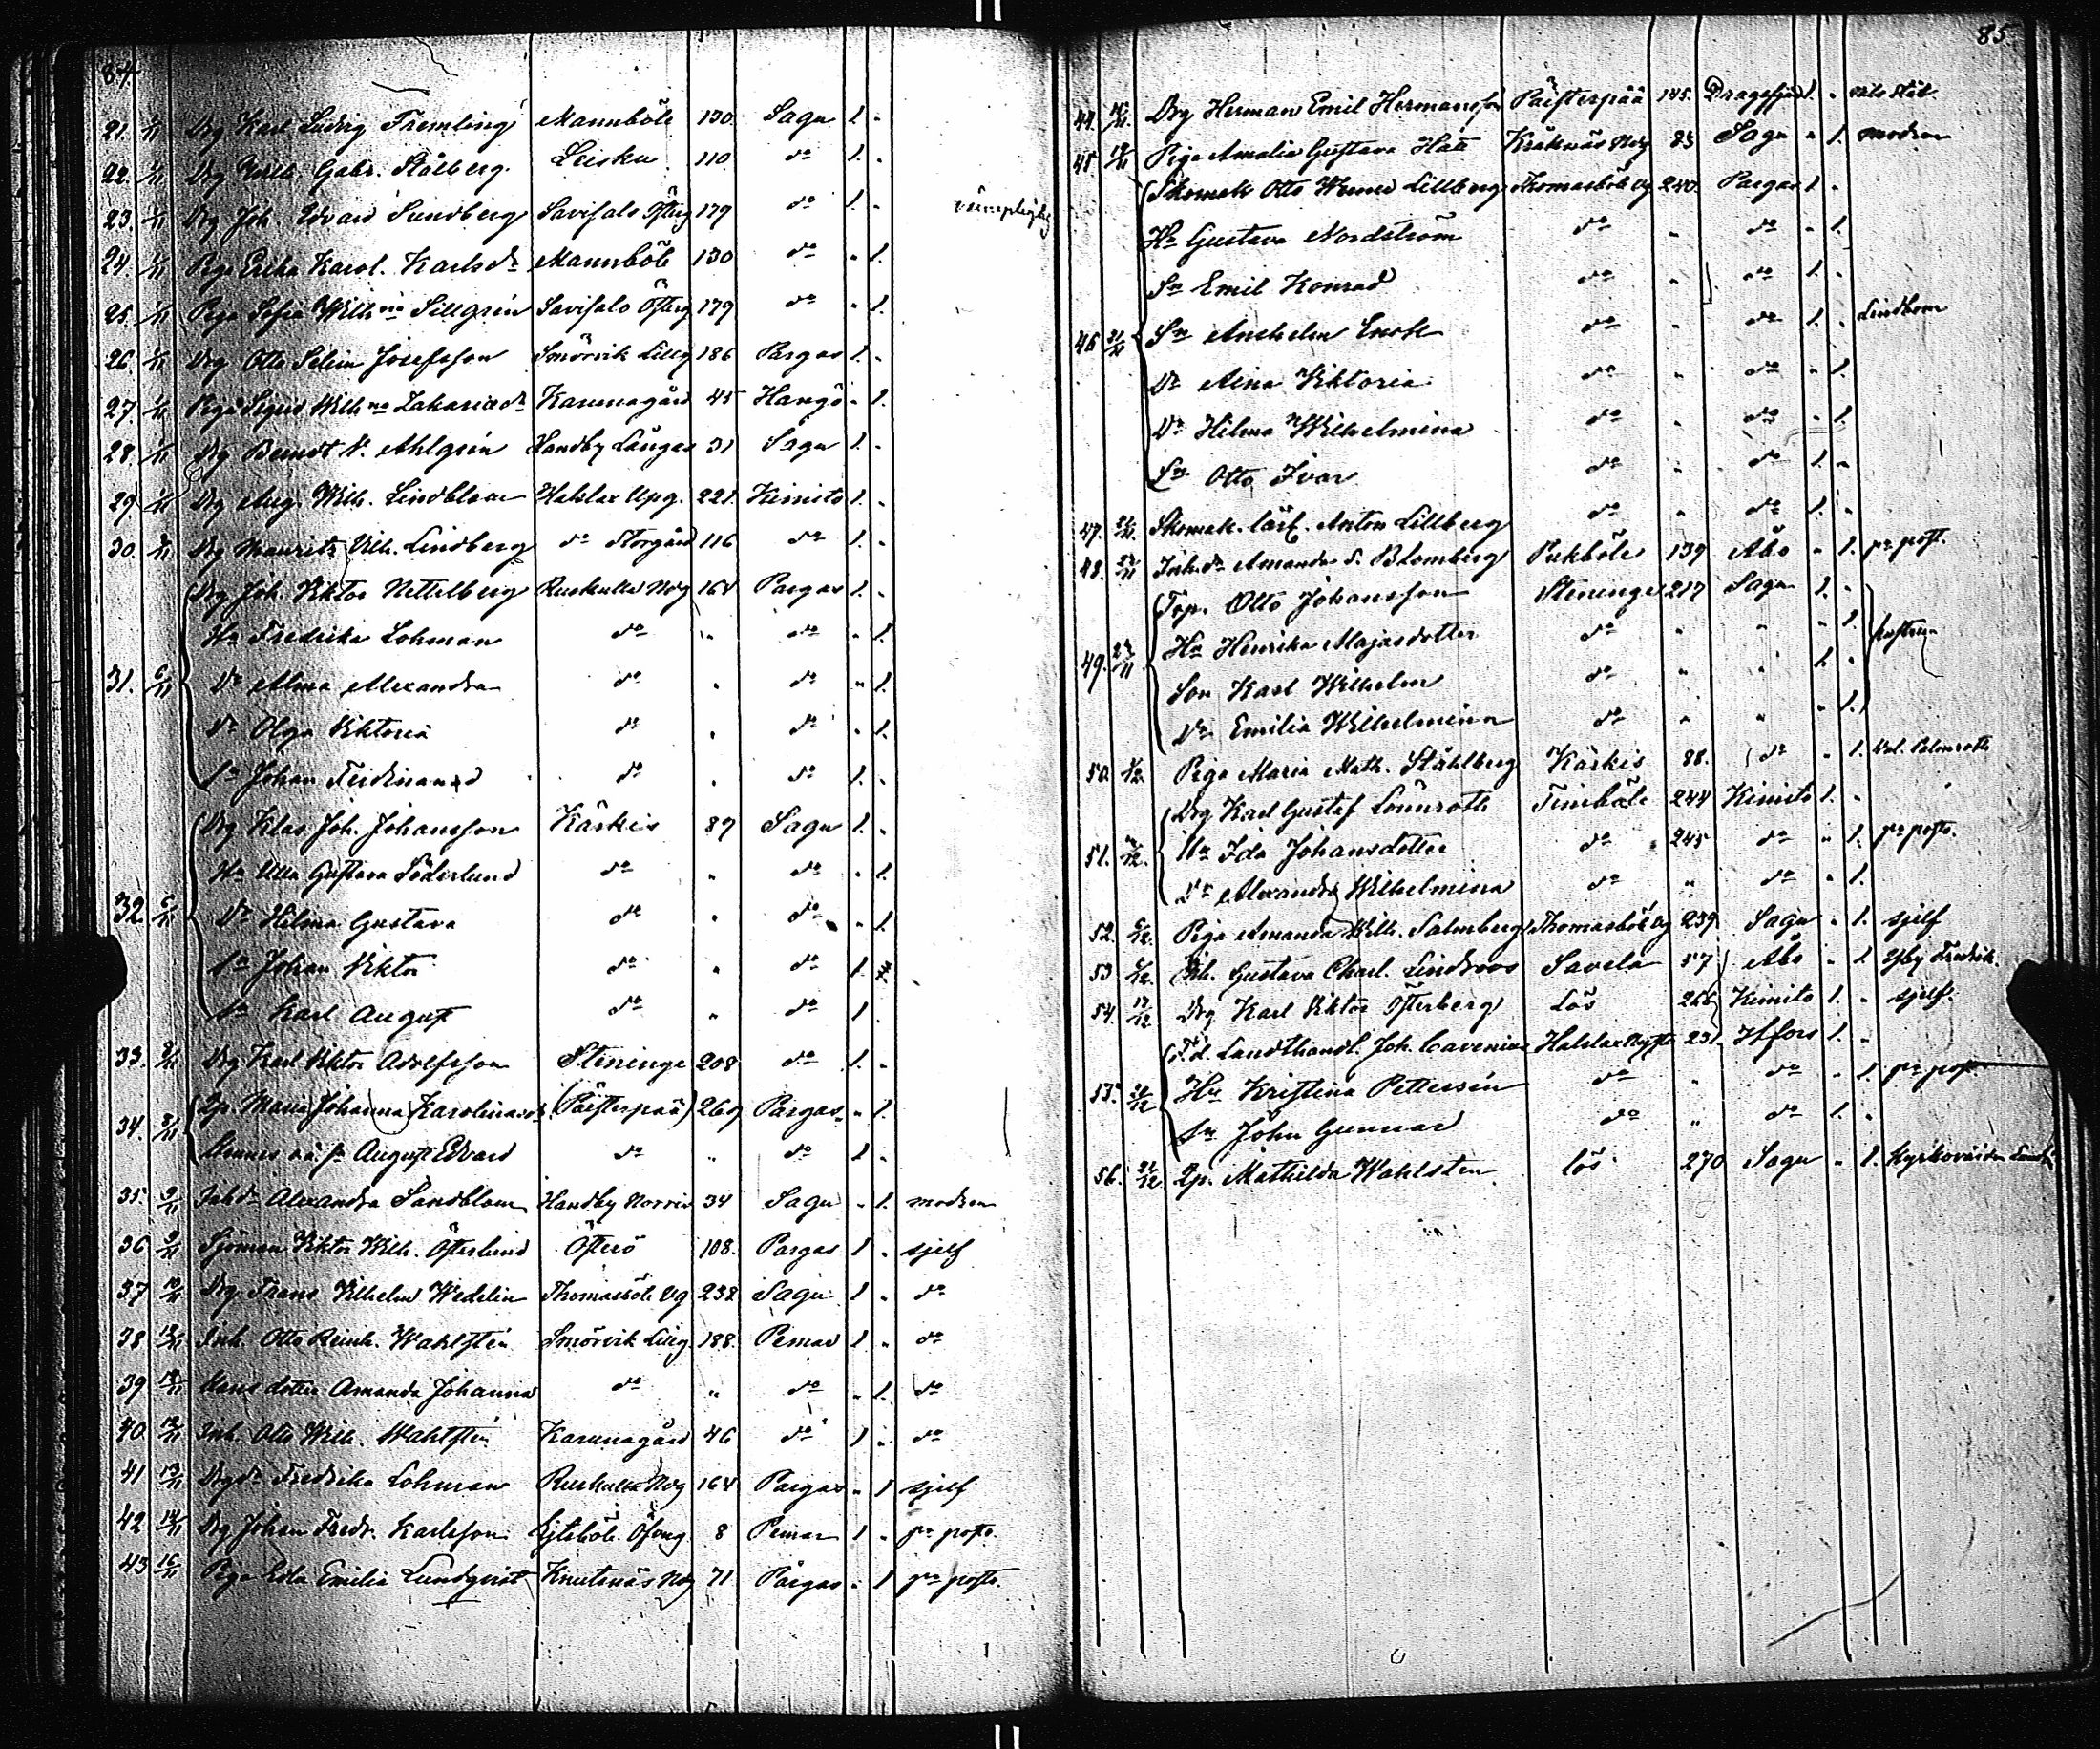 84
21. 1/11 Drg Karl Ludvig Tremling Mannböle 130. Sagu 1. "
22. 1/11 Drg Wilh. Gabr. Stålberg. Leisku 110 do 1. "
23. 1/11 Drg Joh. Edvard Sundberg Savisalo Österg 179 do 1. "
24. 1/11 Piga Erika Karol. Karlsdr Mannböle 130 do " 1.
25. 1/11 Piga Sofia Wilhna Sillgrén Savisalo Österg 179 do " 1.
26. 1/11 Drg Otto Selim Josefsson Smörvik Lillg 186 Pargas 1. "
27. 1/11 Piga Sigrid Wilhna Zakariædr Karunagård 45 Hangö " 1.
28. 1/11 Drg Berndt V. Ahlgrén Sandby Långas 31 Sagu 1. "
29. 1/11 Drg Aug. Wilh. Lindblom Haklax Upg. 221. Kimito 1. "
30. Drg Mauritz Vilh. Lindberg do Storgård 116 do 1. "
Drg Joh. Viktor Nettelberg Ruskulla Norg 164 Pargas 1. "
Hu Fredrika Lohman do " do " 1.
31. 6/11 Dr Alma Alexandra do " do " 1.
Dr Olga Viktoria do " do " 1.
Sn Johan Ferdinand do " do 1. "
Drg Klas Joh. Johansson Kärkis 89 Sagu 1. "
Hu Ulla Gustava Söderlund do " do " 1.
32. 6/11 Dr Hilma Gustava do " do " 1.
Sn Johan Viktor do " do 1.
Sn Karl August do " do 1.
33. Drg Karl Viktor Adolfsson Steninge 208 do 1. "
34. Qp. Maria Johanna Karolinadr (Päisterpää) 269 Pargas " 1.
Hennes oä. sn August Edvard do " do 1 "
35. 9/11 Inhdr Alexandra Sandblom Sandby Norrev 34 Sagu " 1. modren
36 9/11 Sjöman Viktor Wilh. Österlund Österö 108. Pargas 1 " sjelf
37 10/11 Drg Frans Vilhelm Wedelin Thomasböle Ug 238 Sagu 1 " do
38 12/11 Inh. Otto Reinh. Wahlstén Smörvik Lillg. 188. Pemar 1 " do
39 12/11 Hans dotter Amanda Johanna do " do " 1. do
40. 12/11 Inh. Otto Wilh. Wahlstén Karunagård 46 do 1 " do
41 13/11 Drgdr Fredrika Lohman Ruskulla Norg 164 Pargas " 1 sjelf
42 14/11 Drg Johan Fredr. Karlsson 8 Pemar 1 " pr posto.
43 16/11 Piga Edla Emilia Lundqvist Knutnäs Norg 71 Pargas " 1 pr posto.
85.
44. Drg Herman Emil Hermansson Päisterpää 145. Dragsfjärd 1. "
45. Piga Amalia Gustava Hätt Kråknäs Norg 83 Sagu " 1. modren
Skomak Otto Werner Lillberg Thomasböle Ug 240. Pargas 1. "
Hu Gustava Nordström do " do " 1.
Sn Emil Konrad do " do 1. "
46 Sn Anshelm Enok do " do 1. " Lindbom
Dr Aina Viktoria do " do " 1.
Dr Hilma Wilhelmina do " do " 1.
Sn Otto Ivar do " do 1. "
47. Skomak. lärl. Anton Lillberg do " do 1. "
48. Inhdr Amanda S. Blomberg Pukböle 139 Åbo " 1. pr post.
Torp. Otto Johansson Steninge 217 Sagu 1. "
Hu Henrika Majasdotter do " " " 1. hustrun
49. 24/11 Son Karl Wilhelm do " " 1. "
Dr Emilia Wilhelmina do " " " 1.
50. Piga Maria Math. Ståhlberg Kärkis 88. do " 1.
Drg Karl Gustaf Lönnroth Timböle 244 Kimito 1. "
51. Hu Ida Johansdotter do 245 do " 1. pr posto.
Dr Alexandra Wilhelmina do " do " 1.
52. 6/12. Piga Amanda Wilh. Salmberg Thomasböle Ug 239 Sagu " 1. sjelf
53 Inh. Gustava Charl. Lindroos Savela 57 Åbo " 1
54. 17/12 Drg Karl Viktor Österberg Lös 266 Kimito 1. " sjelf.
F.d. Landthandl. Joh. Cavenius 231. Hfors 1. "
55. Hu Kristina Pettersén do " do " 1. pr post
Sn John Gunnar do " do 1. "
56. Qp. Mathilda Wahlsten lös 270 Sagu " 1.